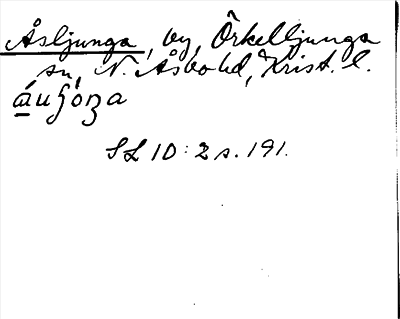 Åsljunga, by, Örkelljunga
sn, N. Åsbo hd, Krist. l.
SL 10:2 s. 191.